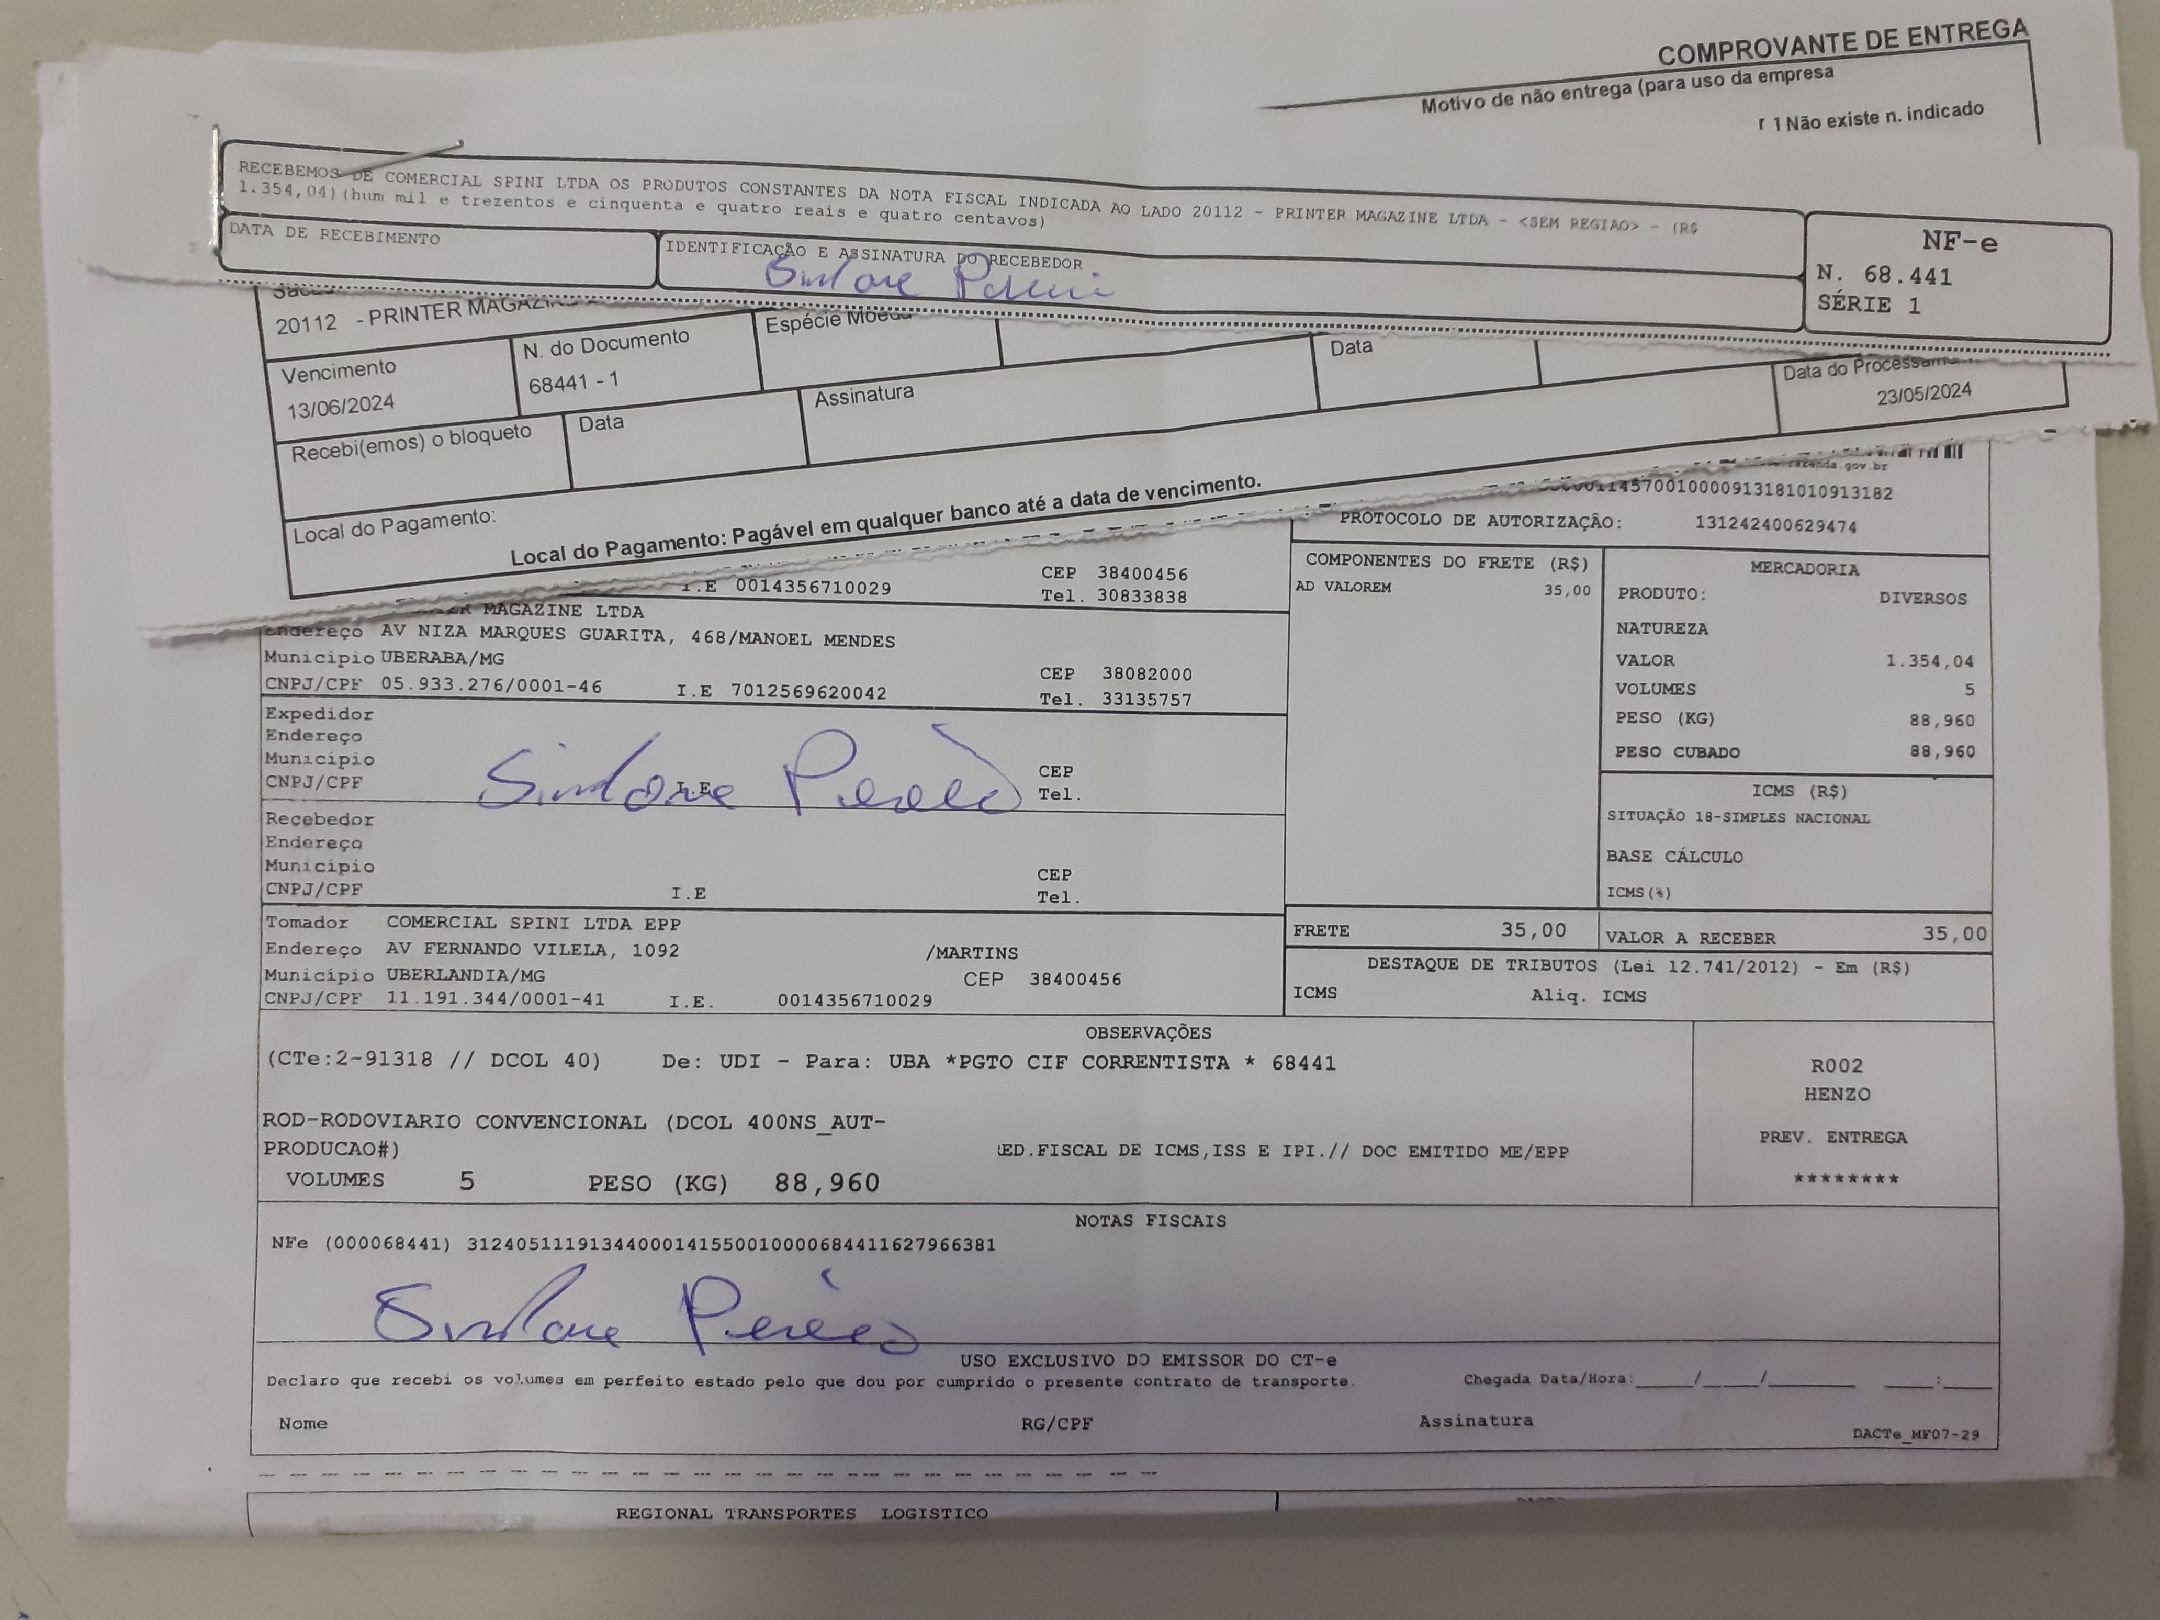 COMPROVANTE DE ENTREGA
Motivo de não entrega (para uso da empresa
Não existe n. indicado
RECEBEMOS DE COMERCIAL SPINI LTDA OS PRODUTOS CONSTANTES DA NOTA FISCAL INDICADA AO LADO 20112 - PRINTER MAGAZINE LTDA - <SEM REGIAO> - (R$
1.354,04)(hum mil e trezentos e cinquenta e quatro reais e quatro centavos)
DATA DE RECEBIMENTO
IDENTIFICAÇÃO E ASSINATURA DO RECEBEDOR
NF-e
N. 68.441
SÉRIE 1
20112 - PRINTER MAGAZINE
Vencimento
13/06/2024
N. do Documento
68441 - 1
Espécie Moeda
Data
Data do Processam
23/05/2024
Recebi(emos) o bloqueto
Data
Assinatura
Local do Pagamento:
Local do Pagamento: Pagável em qualquer banco até a data de vencimento.
fazenda.gov.br
114570010000913181010913182
PROTOCOLO DE AUTORIZAÇÃO: 131242400629474
I.E 0014356710029
CEP 38400456
Tel. 30833838
MAGAZINE LTDA
Endereço AV NIZA MARQUES GUARITA, 468/MANOEL MENDES
Município UBERABA/MG
CEP 38082000
CNPJ/CPF 05.933.276/0001-46 I.E 7012569620042
Tel. 33135757
Expedidor
Endereço
Município
CEP
CNPJ/CPF I.E
Tel.
Simone Pereira
Recebedor
Endereço
Município
CEP
CNPJ/CPF I.E
Tel.
Tomador COMERCIAL SPINI LTDA EPP
Endereço AV FERNANDO VILELA, 1092 /MARTINS
Município UBERLANDIA/MG CEP 38400456
CNPJ/CPF 11.191.344/0001-41 I.E. 0014356710029
COMPONENTES DO FRETE (R$)
AD VALOREM 35,00
MERCADORIA
PRODUTO: DIVERSOS
NATUREZA
VALOR 1.354,04
VOLUMES 5
PESO (KG) 88,960
PESO CUBADO 88,960
ICMS (R$)
SITUAÇÃO 18-SIMPLES NACIONAL
BASE CÁLCULO
ICMS(%)
FRETE 35,00
VALOR A RECEBER 35,00
DESTAQUE DE TRIBUTOS (Lei 12.741/2012) - Em (R$)
ICMS Aliq. ICMS
OBSERVAÇÕES
(CTe:2-91318 // DCOL 40) De: UDI - Para: UBA *PGTO CIF CORRENTISTA * 68441
ROD-RODOVIARIO CONVENCIONAL (DCOL 400NS_AUT-
PRODUCAO#)
ED.FISCAL DE ICMS,ISS E IPI.// DOC EMITIDO ME/EPP
VOLUMES 5 PESO (KG) 88,960
R002
HENZO
PREV. ENTREGA
********
NOTAS FISCAIS
NFe (000068441) 31240511191344000141550010000684411627966381
Simone Pereira
USO EXCLUSIVO DO EMISSOR DO CT-e
Declaro que recebi os volumes em perfeito estado pelo que dou por cumprido o presente contrato de transporte.
Chegada Data/Hora:_____/_____/________ ____:____
Nome
RG/CPF
Assinatura
DACTe_MF07-29
REGIONAL TRANSPORTES LOGISTICO